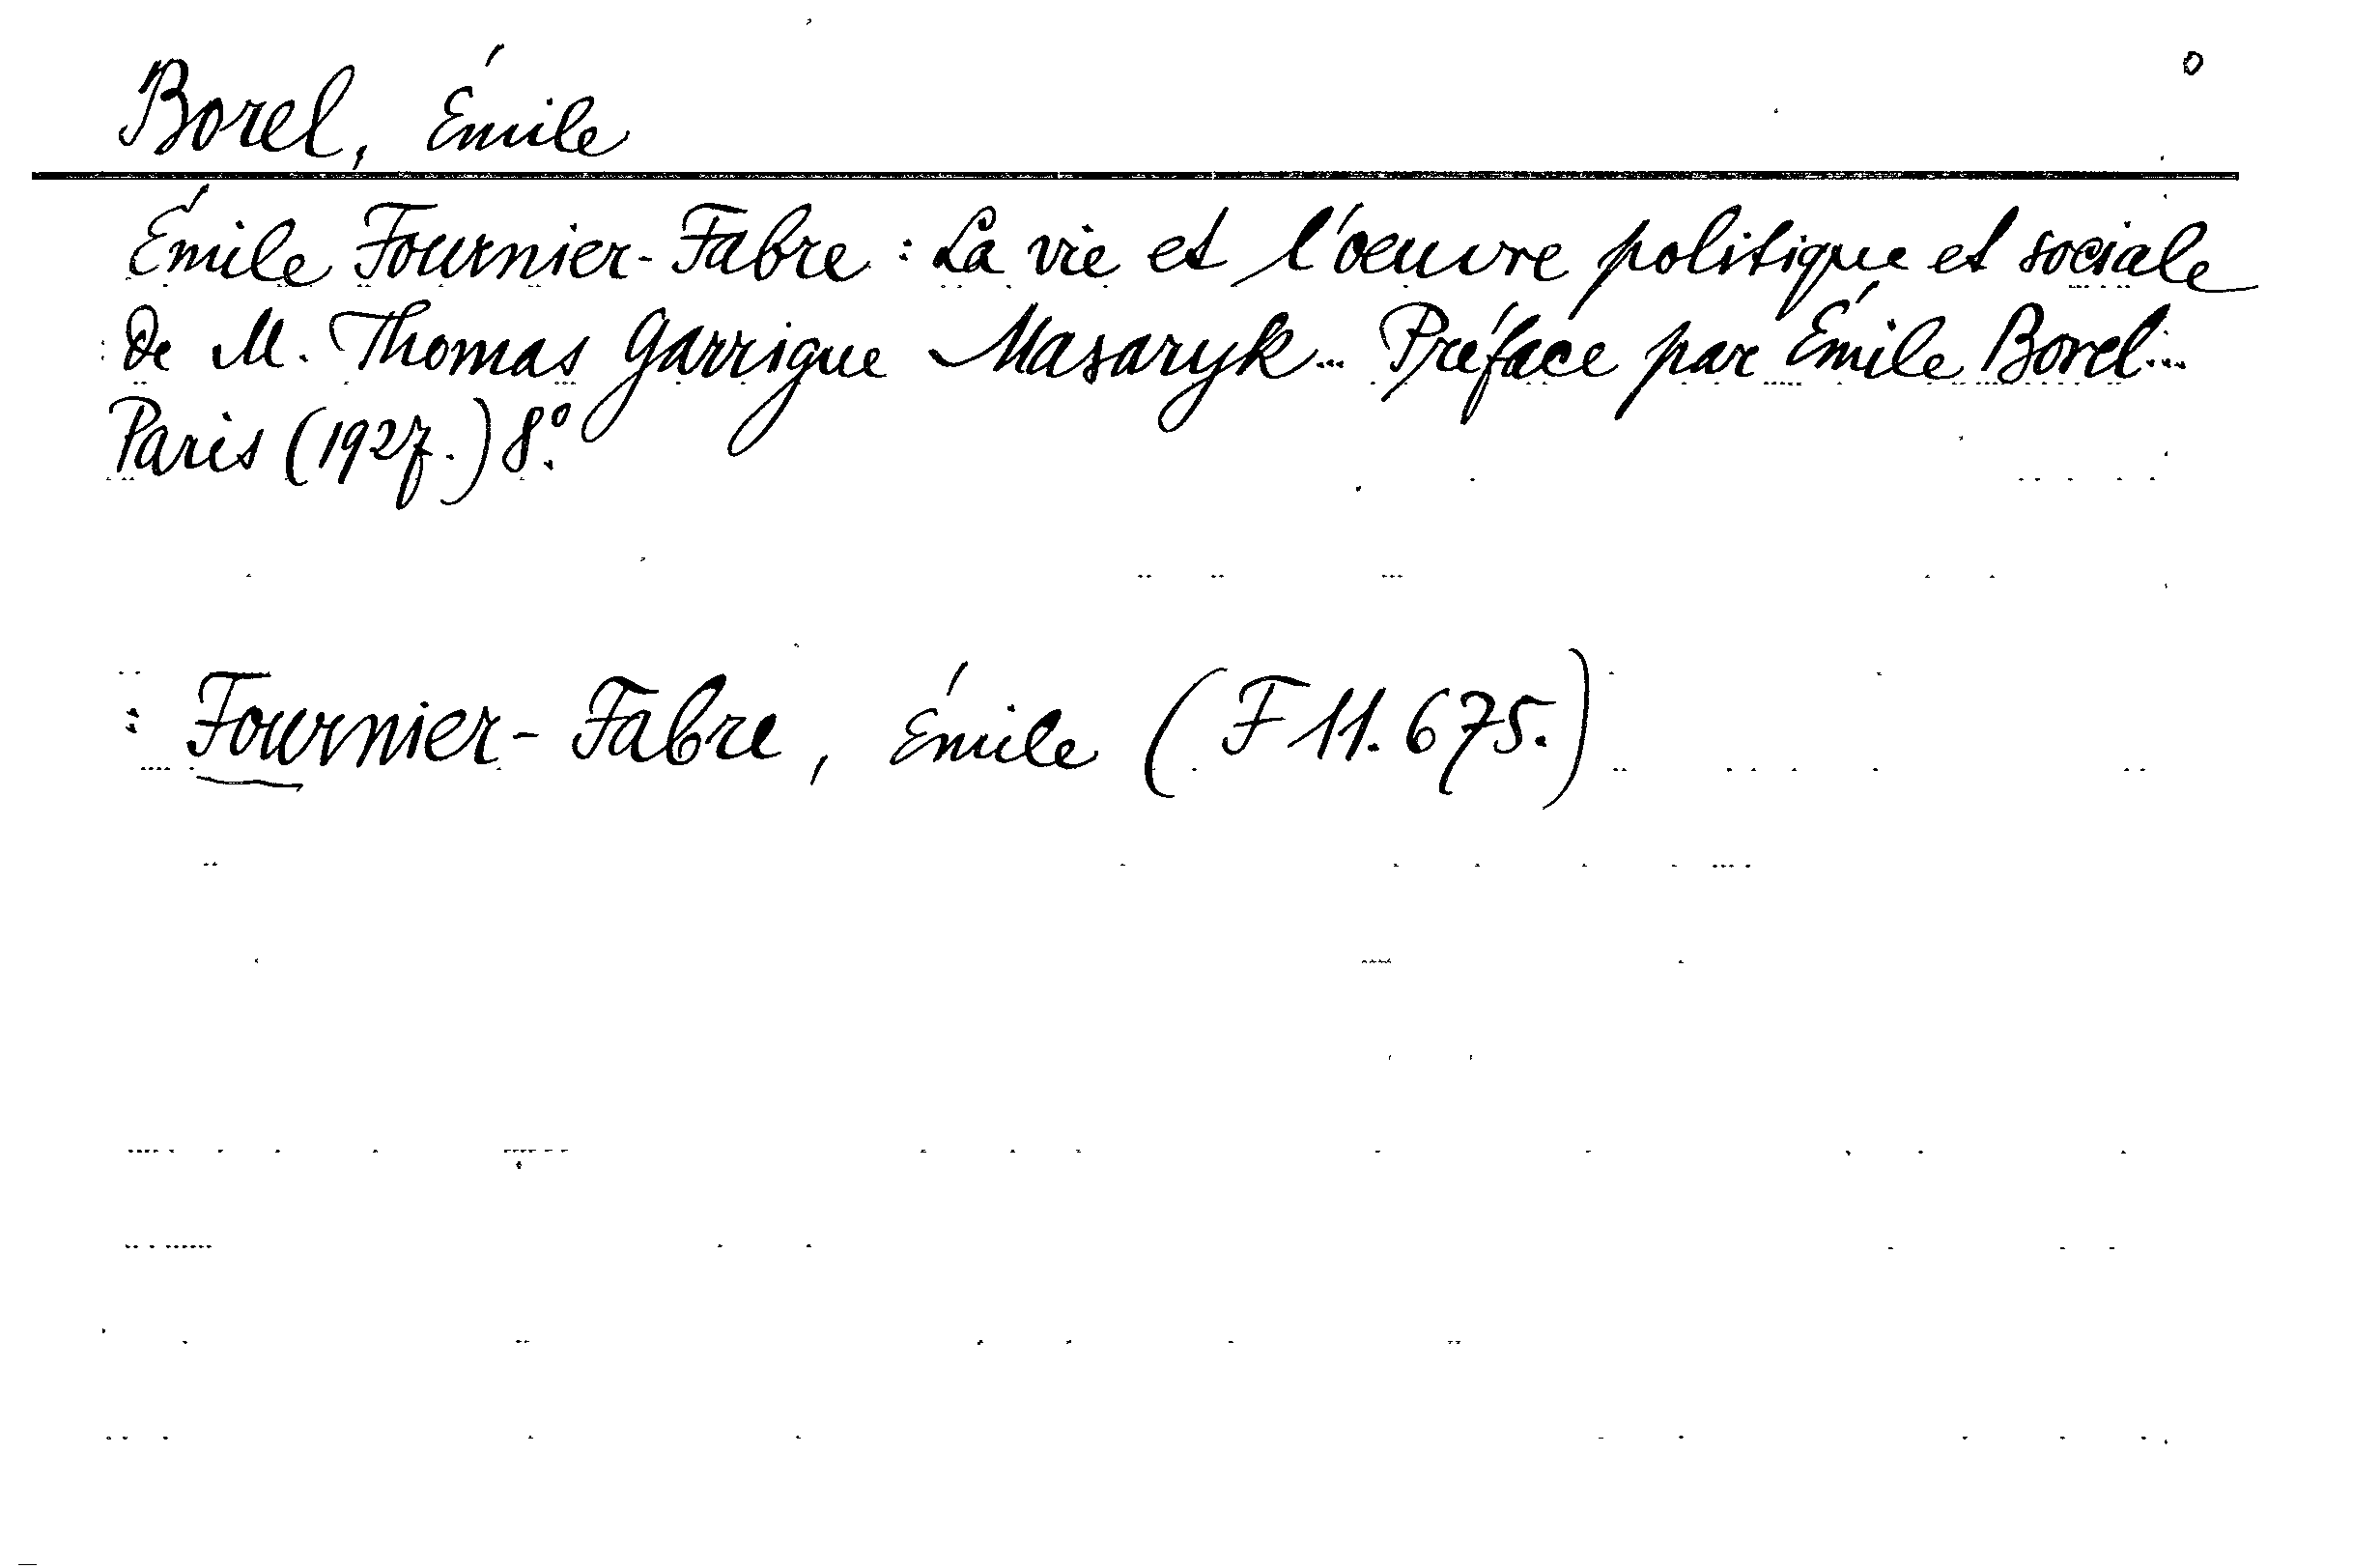 Borel, Émile
o
Émile Fournier-Fabre: La vie et l'oeuvre politique et sociale
de M. Thomas Garrigue Masaryk... Préface par Émile Borel...
Paris (1927.) 8º.
Fournier-Fabre, Émile (F 11.675.)